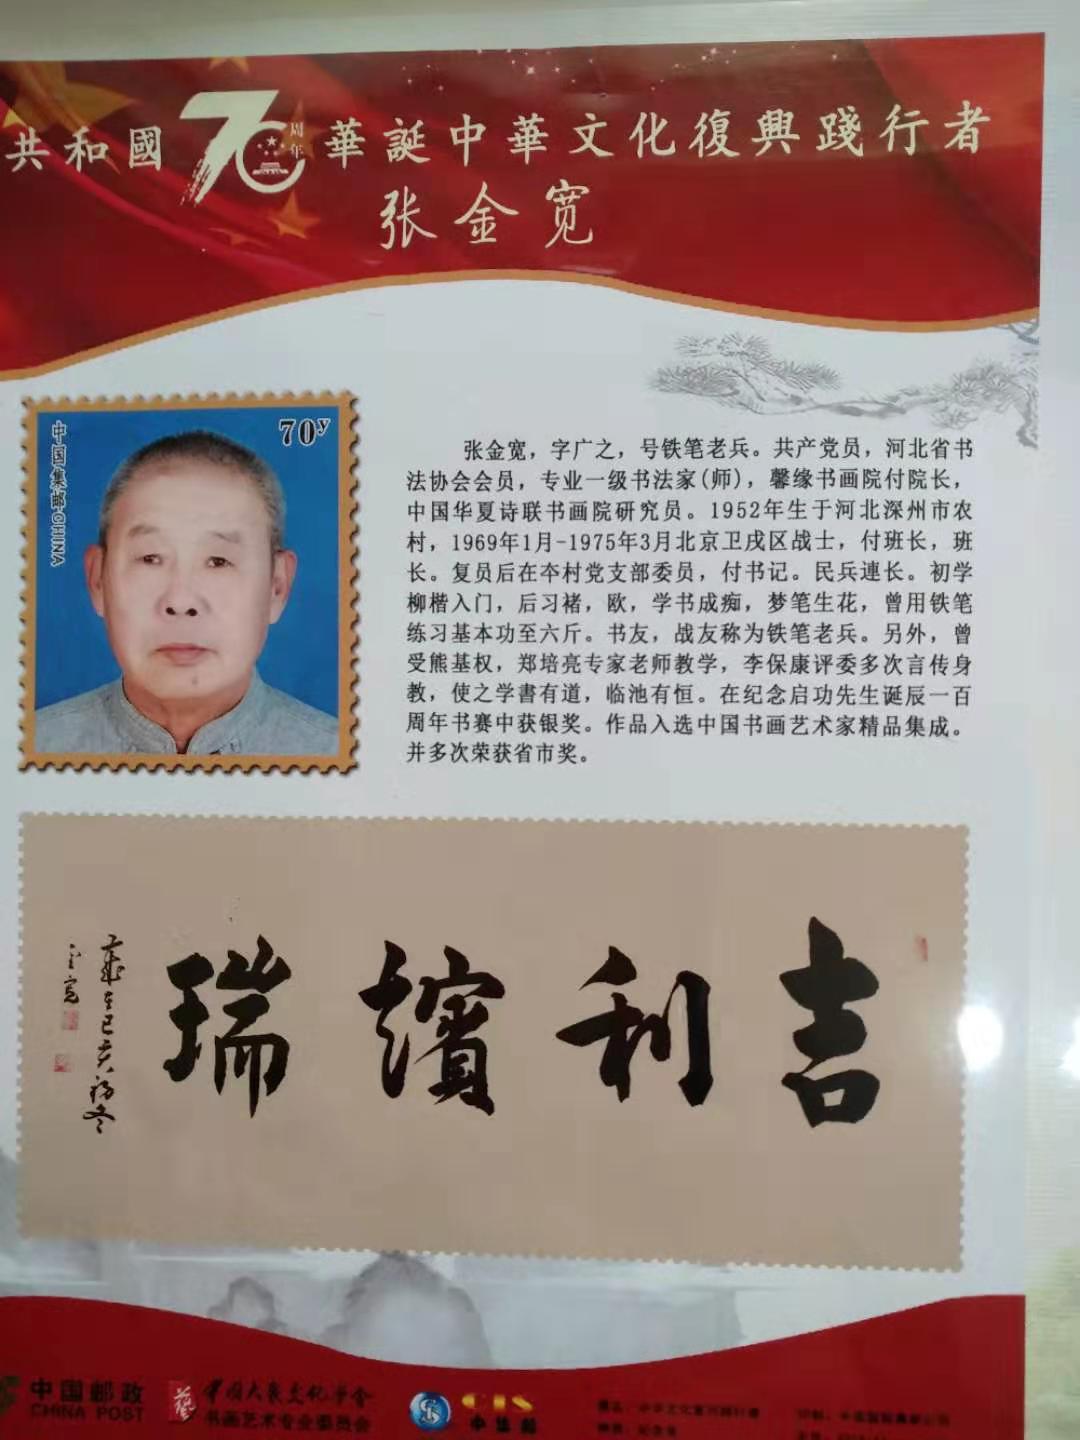 共和國70周年華誕中華文化復興踐行者
张金宽
中国集邮CHINA
70y
张金宽，字广之，号铁笔老兵。共产党员，河北省书
法协会会员，专业一级书法家(师)，馨缘书画院付院长，
中国华夏诗联书画院研究员。1952年生于河北深州市农
村，1969年1月-1975年3月北京卫戌区战士，付班长，班
长。复员后在夲村党支部委员，付书记。民兵連长。初学
柳楷入门，后习褚，欧，学书成痴，梦笔生花，曾用铁笔
练习基本功至六斤。书友，战友称为铁笔老兵。另外，曾
受熊基权，郑培亮专家老师教学，李保康评委多次言传身
教，使之学書有道，临池有恒。在纪念启功先生诞辰一百
周年书赛中获银奖。作品入选中国书画艺术家精品集成。
并多次荣获省市奖。
吉利 瑞
岁在己亥初冬
金宽
中国邮政
CHINA POST
中国大众文化学会
书画艺术专业委员会
CIS